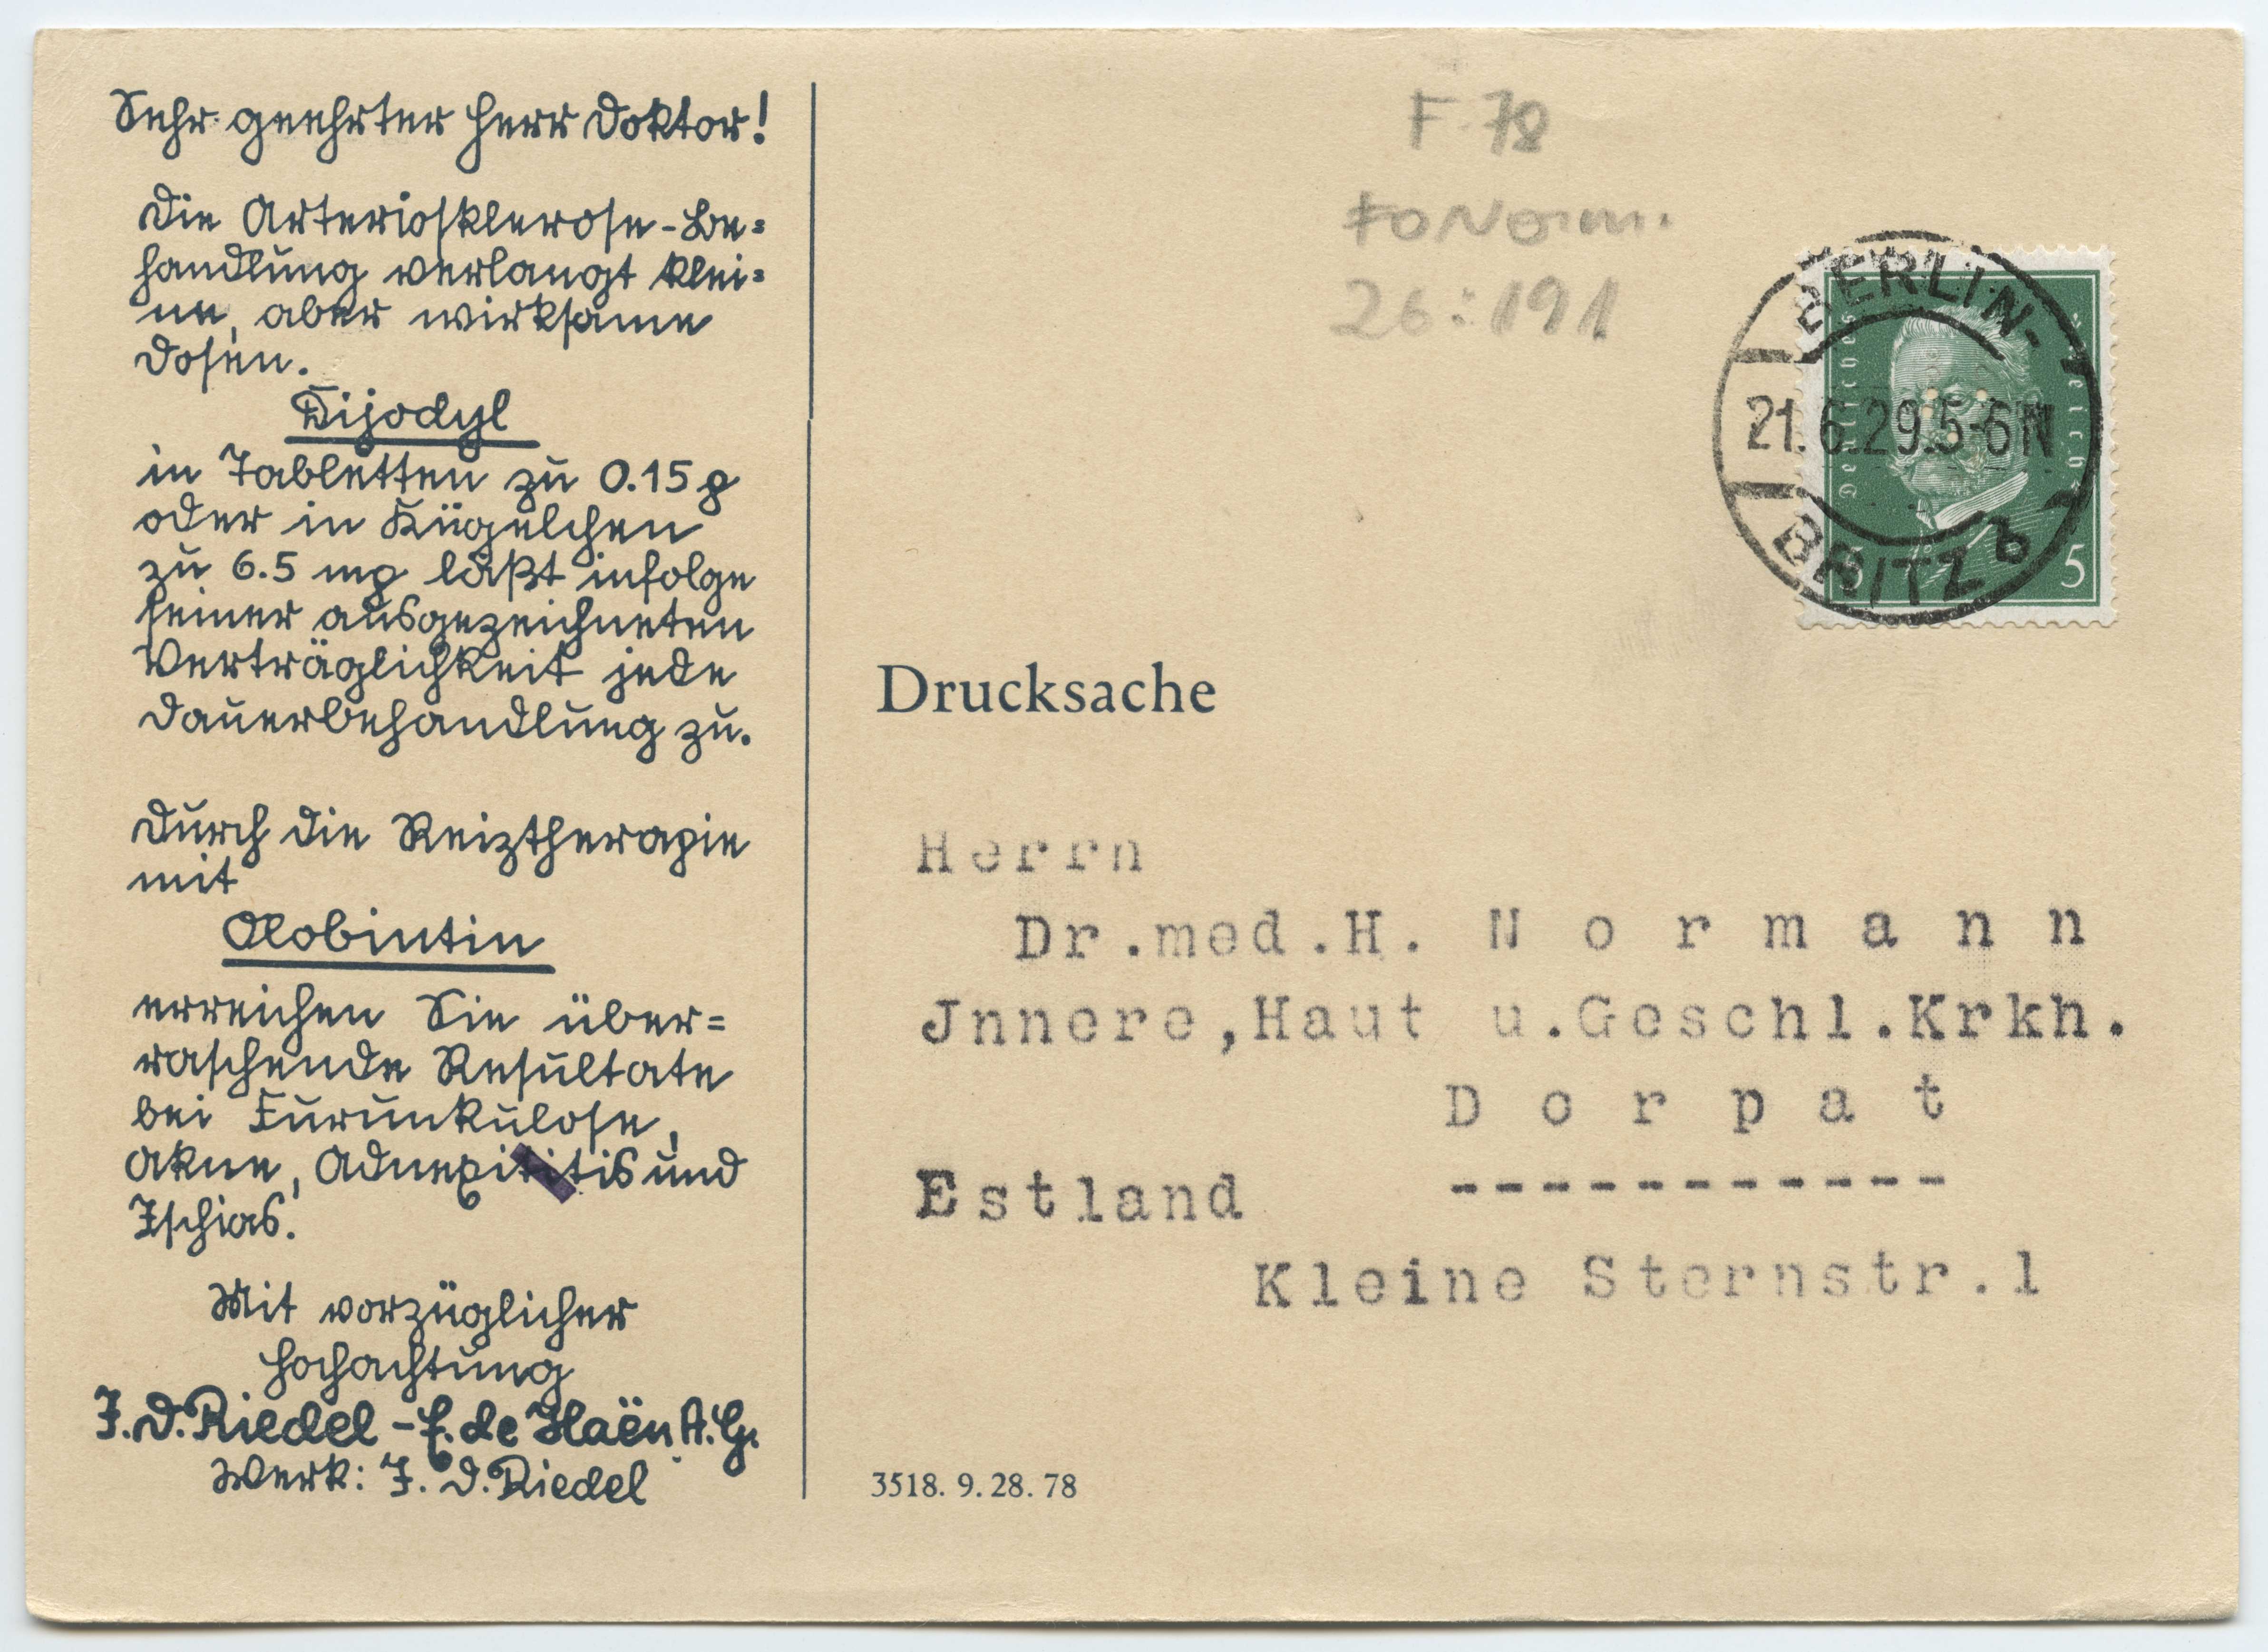 Sehr geehrter Herr Doktor!
Die Arteriosklerose-Be=
handlung verlangt klei=
ne, aber wirksame
Dosen.
Dijodyl
in Tabletten zu 0.15 g
oder in Kügelchen
zu 6.5 mg läßt infolge
seiner ausgezeichneten
Verträglichkeit jede
Dauerbehandlung zu.
Durch die Reiztherapie
mit
Olobintin
erreichen Sie über=
raschende Resultate
bei Furunkulose,
Akne, Adnexititis und
Ischias.
Mit vorzüglicher
Hochachtung
J.D.Riedel-E.de Haën A.G.
Werk: J.D.Riedel
F 78
26:191
BERLIN-
21.6.29.5-6N
BRITZ b
Deutsches Reich
5
Drucksache
Herrn
Dr.med.H. Normann
Jnnere,Haut u.Geschl.Krkh.
Dorpat
------------
Estland
Kleine Sternstr.1
3518. 9. 28. 78